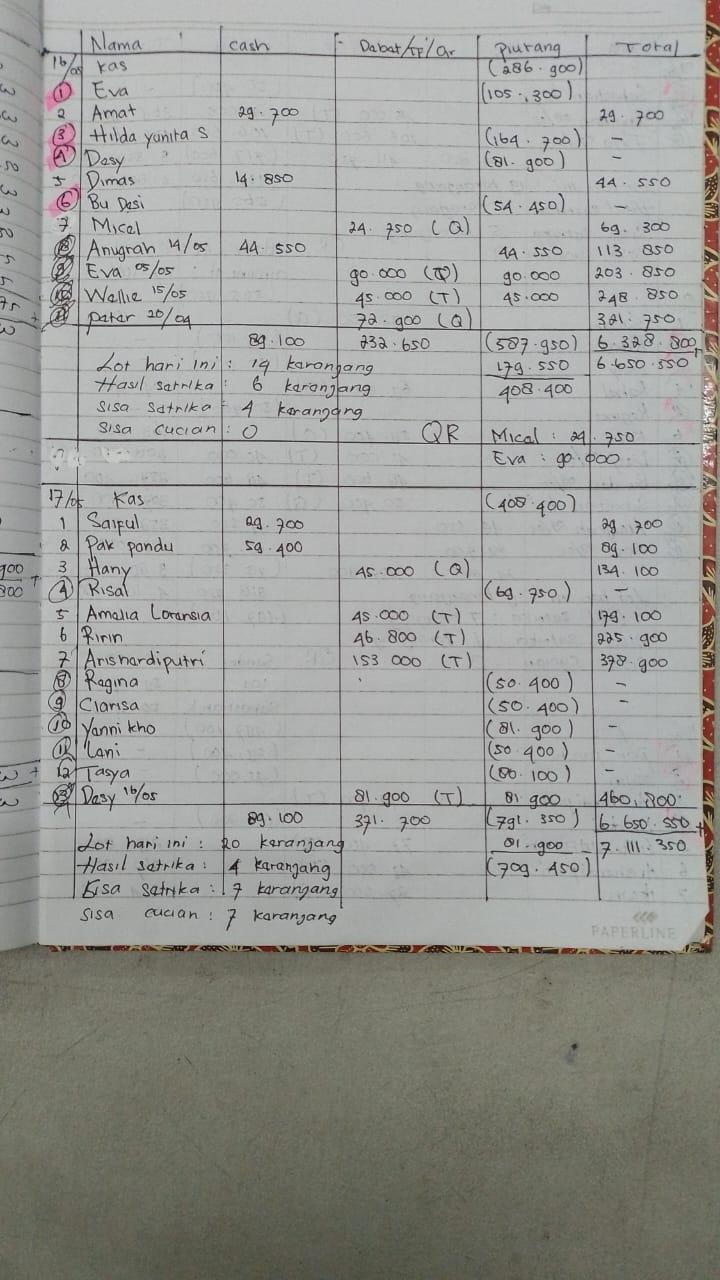 Nama cash Debet/TF/Qr Piutang Total
16/05 Kas (286.900)
1 Eva (105.300)
2 Amat 29.700 29.700
3 Hilda yunita S (164.700) -
4 Desy (81.900) -
5 Dimas 14.850 44.550
6 Bu Desi (54.450) -
7 Micel 24.750 (Q) 69.300
8 Anugrah 14/05 44.550 44.550 113.850
9 Eva 05/05 90.000 (Q) 90.000 203.850
10 Wellie 15/05 45.000 (T) 45.000 248.850
11 peter 20/04 72.900 (Q) 321.750
89.100 232.650 (587.950) 6.328.800
Lot hari ini : 14 keranjang 179.550 6.650.550
Hasil setrika : 6 keranjang 408.400
Sisa Setrika : 4 keranjang
Sisa cucian : 0 QR Mical : 24.750
Eva : 90.000
17/05 Kas (408.400)
1 Saiful 29.700 29.700
2 Pak pandu 59.400 89.100
3 Hany 45.000 (Q) 134.100
4 Risal (69.750) -
5 Amelia Loransia 45.000 (T) 179.100
6 Ririn 46.800 (T) 225.900
7 Arishardiputri 153 000 (T) 378.900
8 Regina (50.400) -
9 Clarisa (50.400) -
10 Yanni kho (81.900) -
11 Lani (50.400) -
12 Tasya (80.100) -
13 Desy 16/05 81.900 (T) 81.900 460.800
89.100 371.700 (791.350) 6.650.550
Lot hari ini : 20 keranjang 81.900 7.111.350
Hasil setrika : 4 keranjang (709.450)
Sisa setrika : 7 keranjang
Sisa cucian : 7 keranjang
PAPERLINE